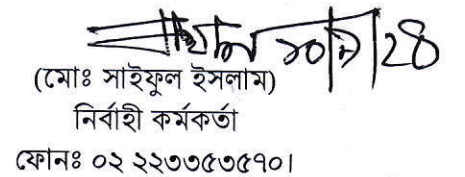 (মোঃ সাইফুল ইসলাম)
নির্বাহী কর্মকর্তা
ফোনঃ ০২ ২২৩৩৫৩৫৭০।